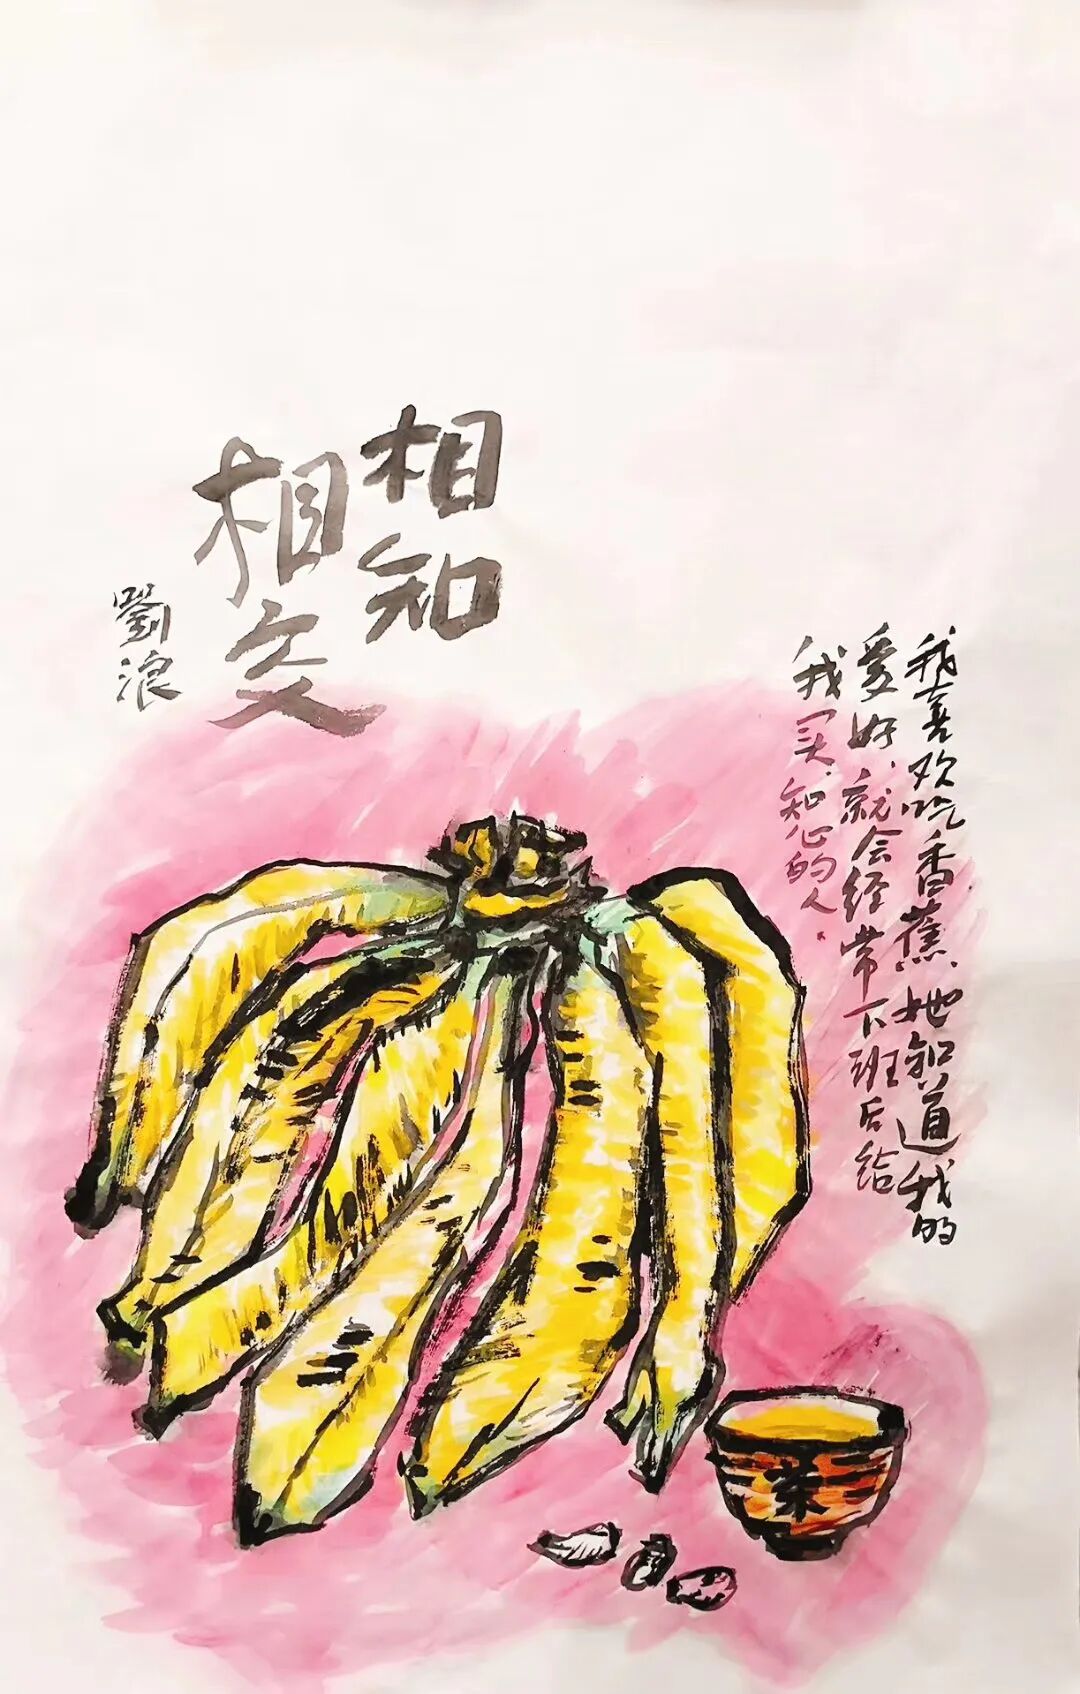 我喜欢吃香蕉、她知道我的
爱好、就会经常下班后给
我买、知心的人.
相知
相交
劉浪
茶